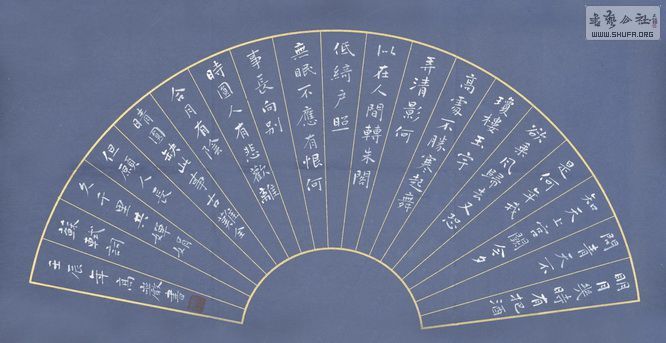 明月幾時有把酒
問青天不
知天上宮闕今夕
是何年我
欲乘風歸去又恐
瓊樓玉宇
高處不勝寒起舞
弄清影何
似在人間轉朱閣
低綺戶照
無眠不應有恨何
事長向別
時圓人有悲歡離
合月有陰
晴圓缺此事古難全
但願人長
久千里共嬋娟
蘇軾詞
壬辰年高嚴書
WWW.SHUFA.ORG